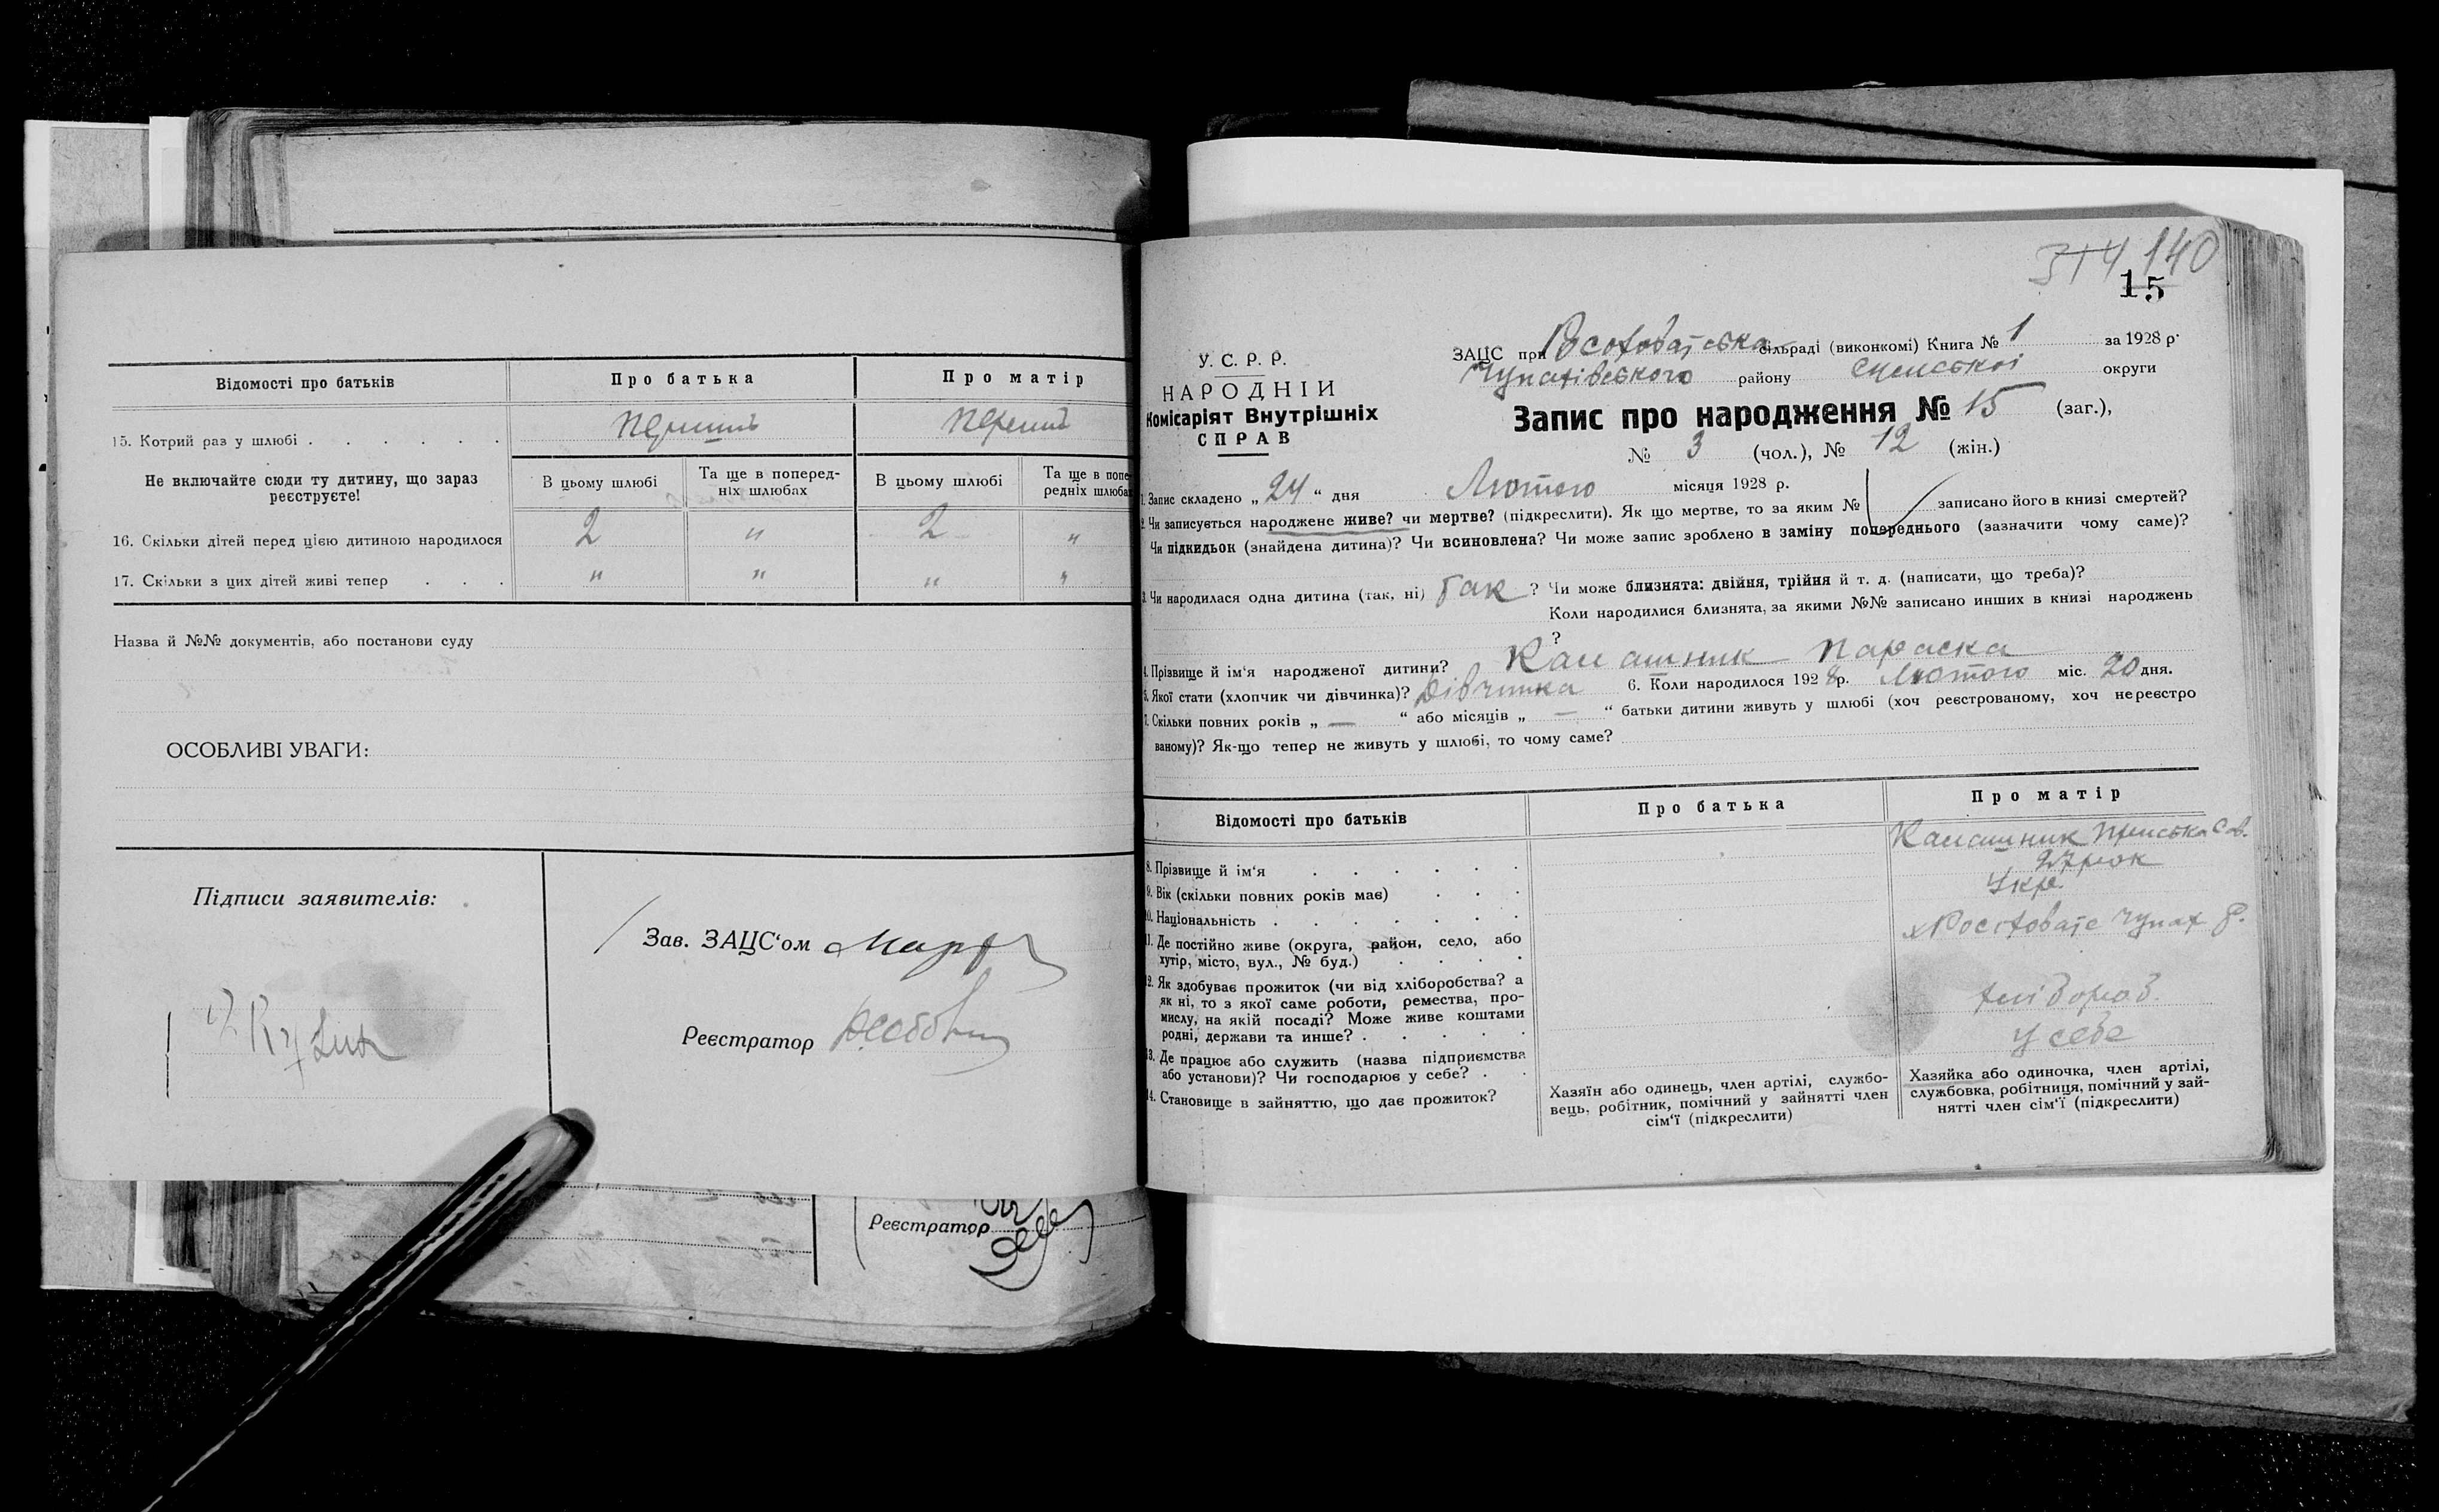 Відомості про батьків
Про батька
Про матір
15. Котрий раз у шлюбі . . . . . .
перший
перший
Не включайте сюди ту дитину, що зараз
реєструєте!
В цьому шлюбі
Та ще в поперед-
ніх шлюбах
В цьому шлюбі
Та ще в попе
редніх шлюба
16. Скільки дітей перед цією дитиною народилося
2 " 2 "
17. Скільки з цих дітей живі тепер . . .
" " " "
Назва й №№ документів, або постанови суду
ОСОБЛИВІ УВАГИ:
Підписи заявителів:
Зав. ЗАЦС'ом
Реєстратор
Реєстратор
140
15
У. С. Р. Р.
НАРОДНІЙ
Комісаріят Внутрішніх
СПРАВ
ЗАЦС при сільраді (виконкомі) Книга № 1 за 1928 р.
Чупахівського району округи
Запис про народження № 15 (заг.),
№ 3 (чол.), № 12 (жін.)
1. Запис складено „ 24 " дня Лютого місяця 1928 р.
2. Чи записується народжене живе? чи мертве? (підкреслити). Як що мертве, то за яким № записано його в книзі смертей?
Чи підкидьок (знайдена дитина)? Чи всиновлена? Чи може запис зроблено в заміну попереднього (зазначити чому саме)?
3. Чи народилася одна дитина (так, ні) Так ? Чи може близнята: двійня, трійня й т. д. (написати, що треба)?
Коли народилися близнята, за якими №№ записано инших в книзі народжень
?
4. Прізвище й ім'я народженої дитини? Калашник Параска
5. Якої стати (хлопчик чи дівчинка)? Дівчинка 6. Коли народилося 1928 р. Лютого міс. 20 дня.
7. Скільки повних років „ — " або місяців „ — " батьки дитини живуть у шлюбі (хоч реєстрованому, хоч нереєстро
ваному)? Як-що тепер не живуть у шлюбі, то чому саме?
Відомості про батьків
Про батька
Про матір
8. Прізвище й ім'я . . . . . .
Калашник
9. Вік (скільки повних років має) . . .
27 рок
10. Національність . . . . . . .
Укр.
11. Де постійно живе (округа, район, село, або
хутір, місто, вул., № буд.) . . . .
Чупах р.
12. Як здобуває прожиток (чи від хліборобства? а
як ні, то з якої саме роботи, ремества, про-
мислу, на якій посаді? Може живе коштами
родні, держави та инше? . . . .
хлібороб.
13. Де працює або служить (назва підприємства
або установи)? Чи господарює у себе? . .
У себе
14. Становище в зайняттю, що дає прожиток?
Хазяїн або одинець, член артілі, службо-
вець, робітник, помічний у зайнятті член
сім'ї (підкреслити)
Хазяйка або одиночка, член артілі,
службовка, робітниця, помічний у зай-
нятті член сім'ї (підкреслити)